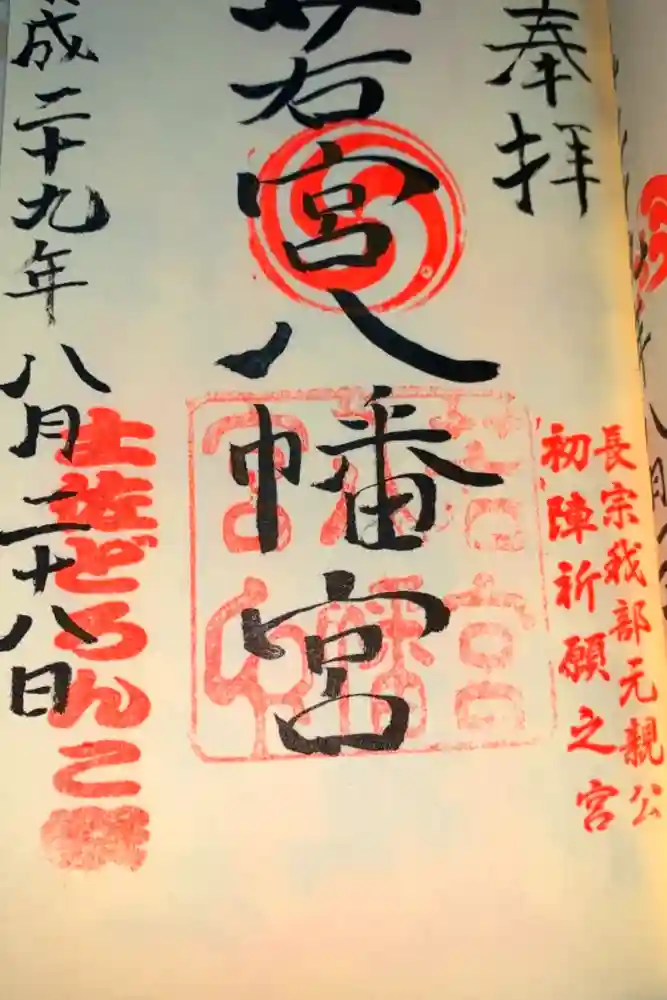 奉拝
長宗我部元親公
初陣祈願之宮
若宮八幡宮
若宮八幡宮
土佐どろんこ祭
平成二十九年八月二十八日